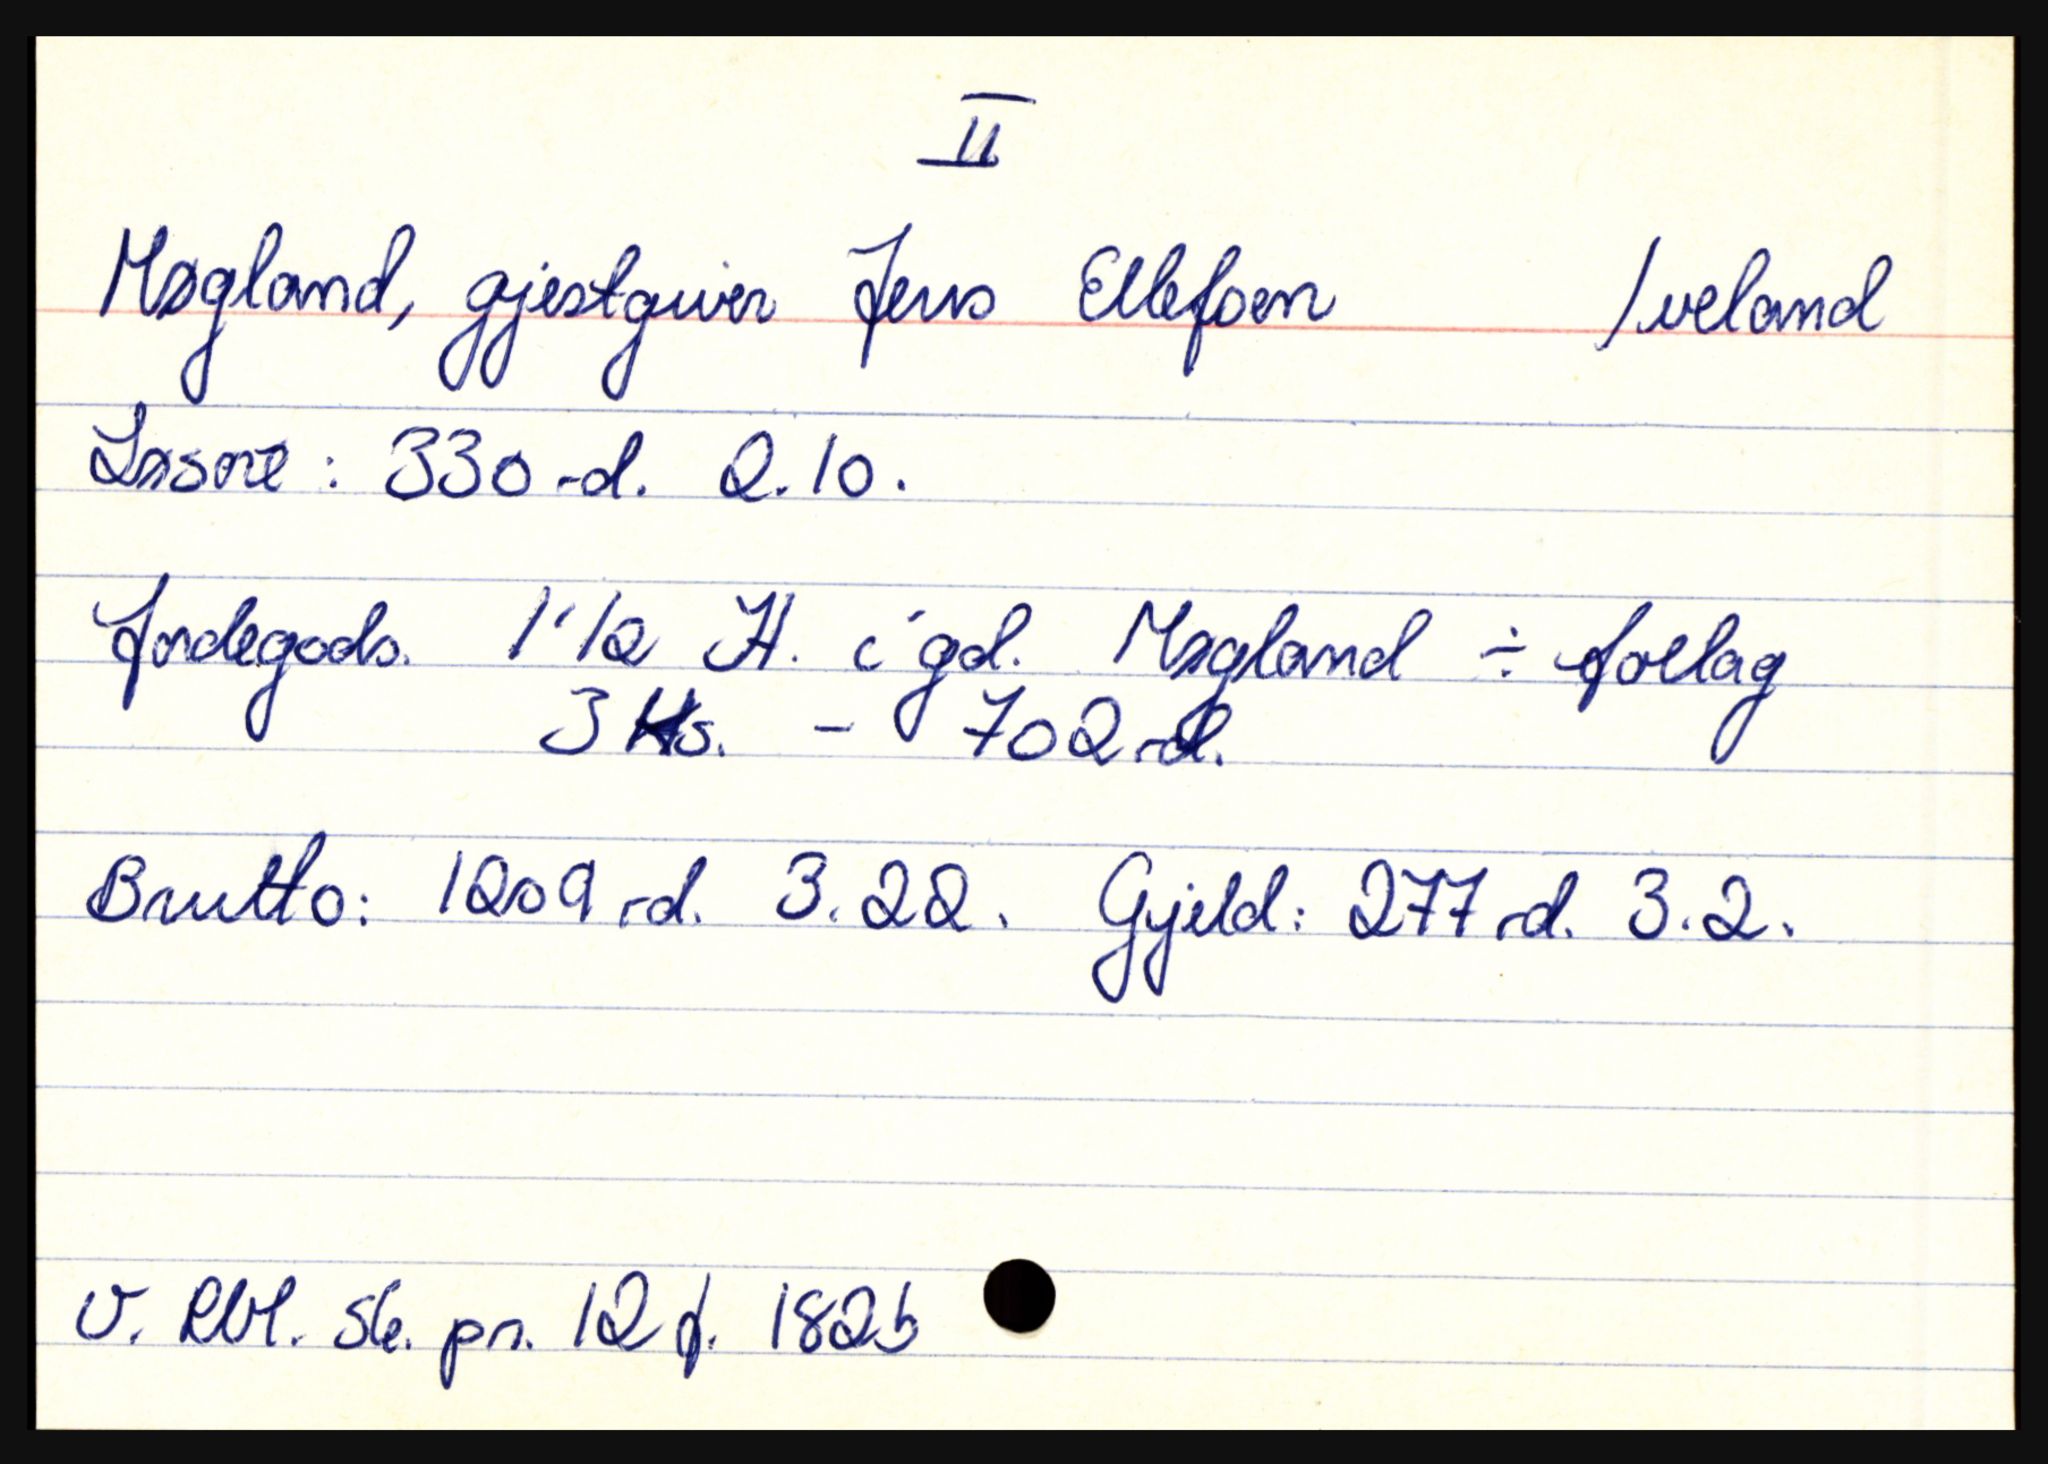 II
Møgland, gjestgiver Jens Ellefsen Iveland
Løsøre: 330 rd. 2.10.
Jordegods. 1 1/2 H. i gd. Møgland ÷ forlag
3 Ks. - 702 rd.
Brutto: 1209 rd. 3.22. Gjeld: 277 rd. 3.2.
V. Rbl. Sk. pr. 12 f. 182b